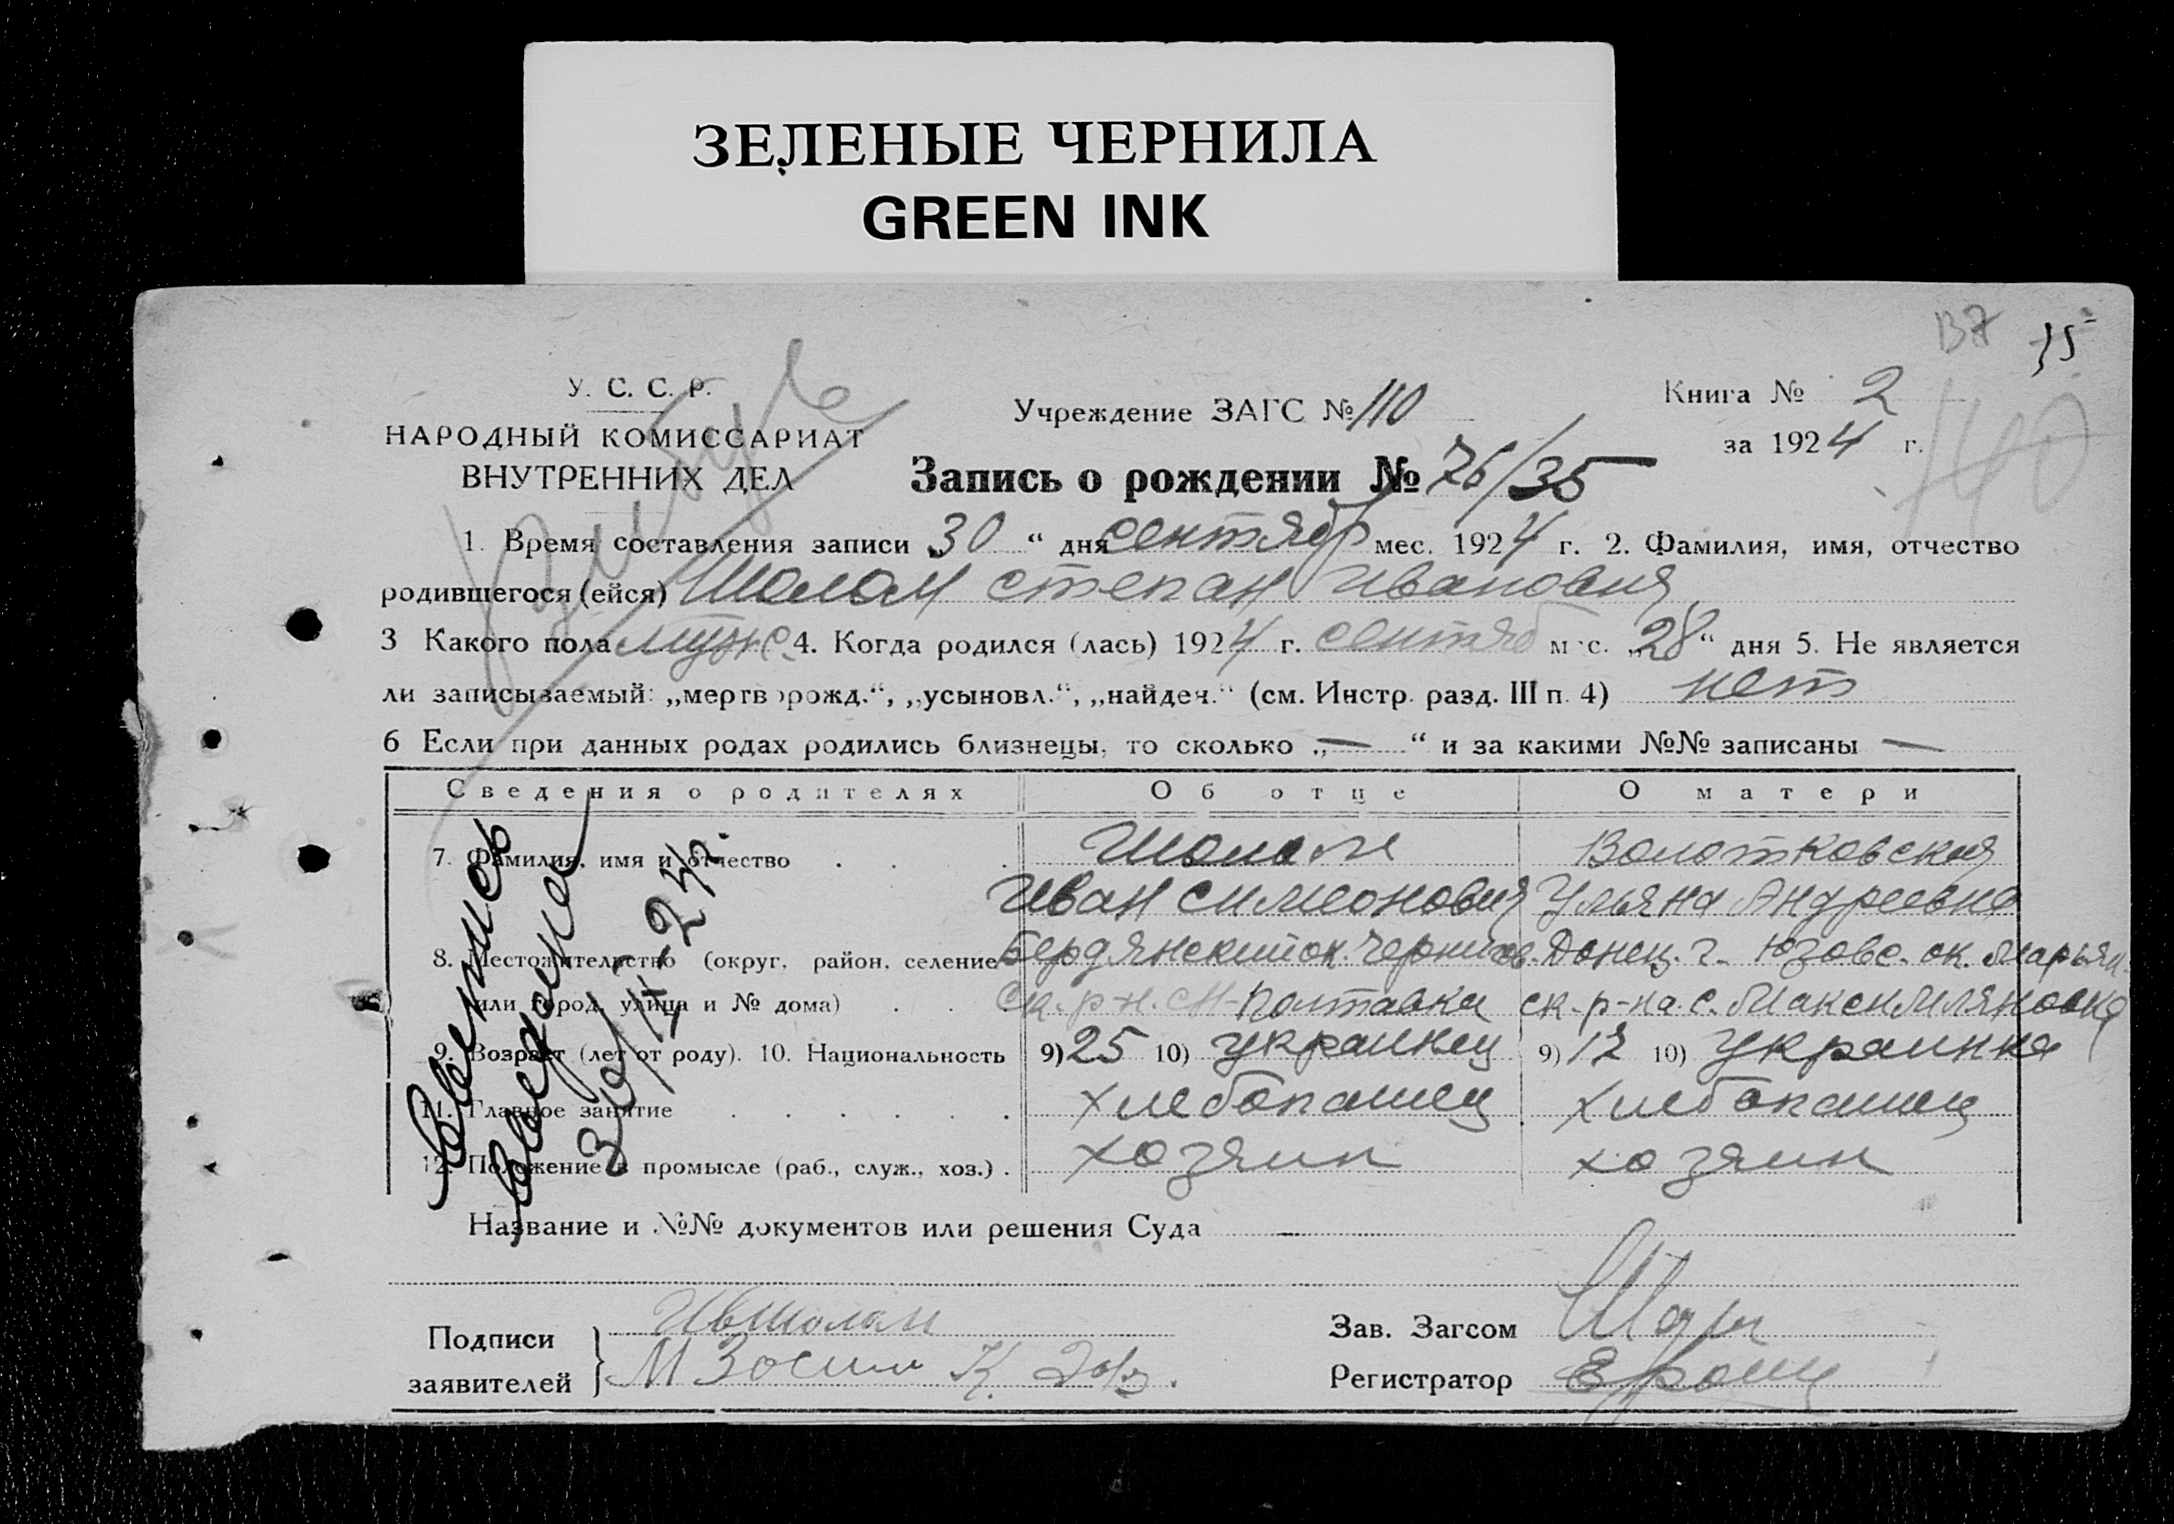 ЗЕЛЕНЫЕ ЧЕРНИЛА
GREEN INK
В7 35
У. С. С. Р.
НАРОДНЫЙ КОМИССАРИАТ
ВНУТРЕННИХ ДЕЛ
Учреждение ЗАГС № 110
Книга № 2
за 1924 г.
140
Запись о рождении № 76/35
1. Время составления записи „30“ дня сентябр мес. 1924 г. 2. Фамилия, имя, отчество
родившегося (ейся) Шолом Степан Иванович
3 Какого пола муж. 4. Когда родился (лась) 1924 г. сентяб мес. „28“ дня 5. Не является
ли записываемый: „мертворожд.“, „усыновл.“, „найден.“ (см. Инстр. разд. III п. 4) нет
6 Если при данных родах родились близнецы, то сколько „—“ и за какими №№ записаны —
Сведения о родителях Об отце О матери
7. Фамилия, имя и отчество Шолом Волотковская
Иван Симеонович Ульяна Андреевна
8. Местожительство (округ, район, селение Бердянский ок. Чернигов. Донец. г. Юзовс. ок. Марьин
или город, улица и № дома) ск. р-н. с. Полтавка ск. р-на. с. Максимляновка
9. Возраст (лет от роду). 10. Национальность 9) 25 10) украинец 9) 10) украинка
11. Главное занятие хлебопашец хлебопашец
12. Положение в промысле (раб., служ., хоз.) хозяин хозяин
Название и №№ документов или решения Суда —
Подписи
заявителей
Зав. Загсом
Регистратор